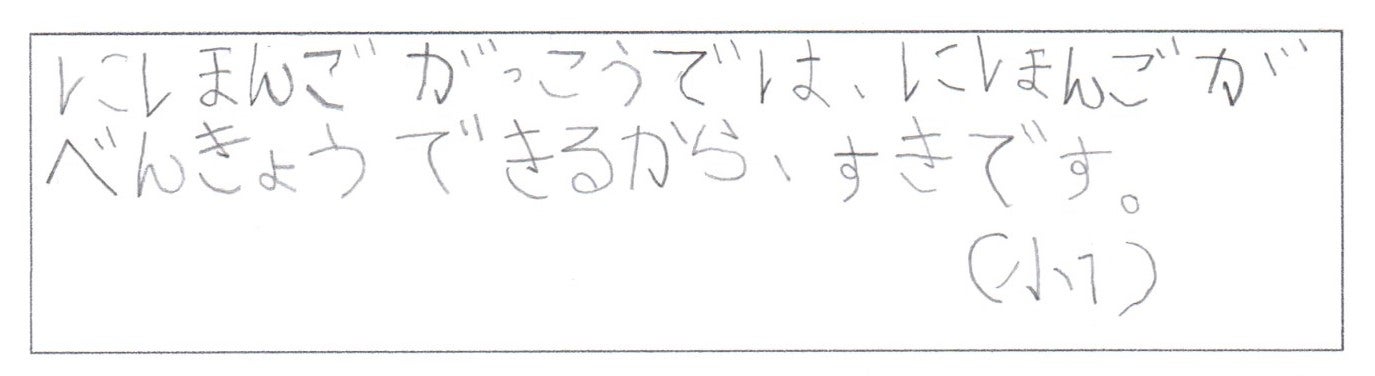 にほんごがっこうでは、にほんごが
べんきょうできるから、すきです。
(小1)